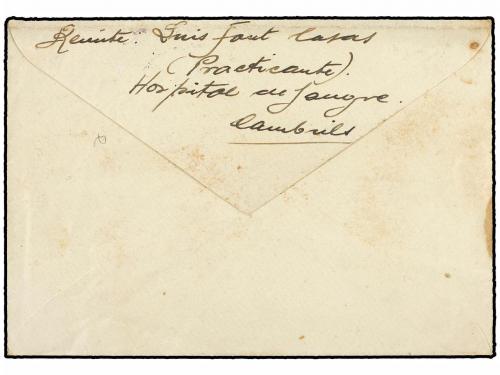 Remite. Luis Font Casas
(Practicante).
Hospital de Sangre.
Cambrils